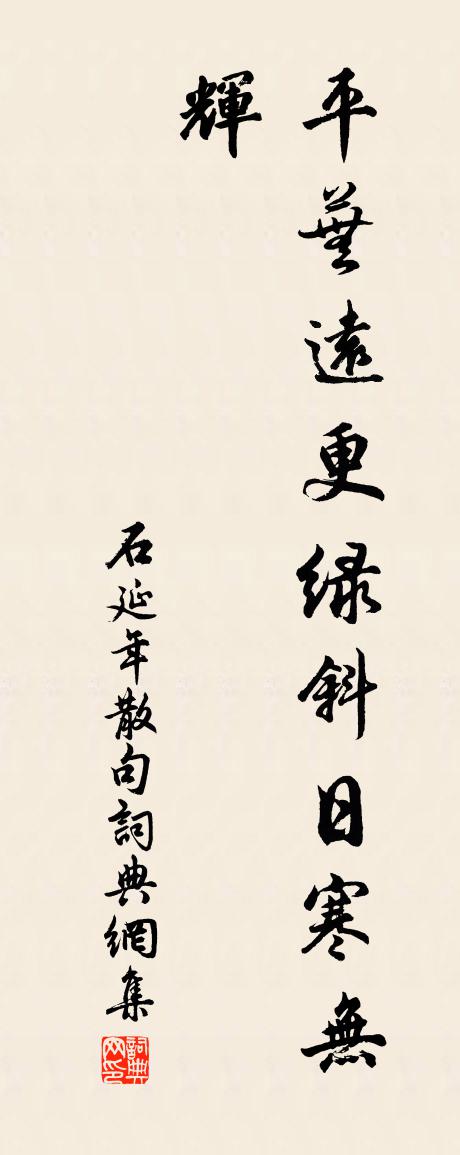 平蕪遠更緑斜日寒無
輝
石延年散句詞典網集
詞典网印